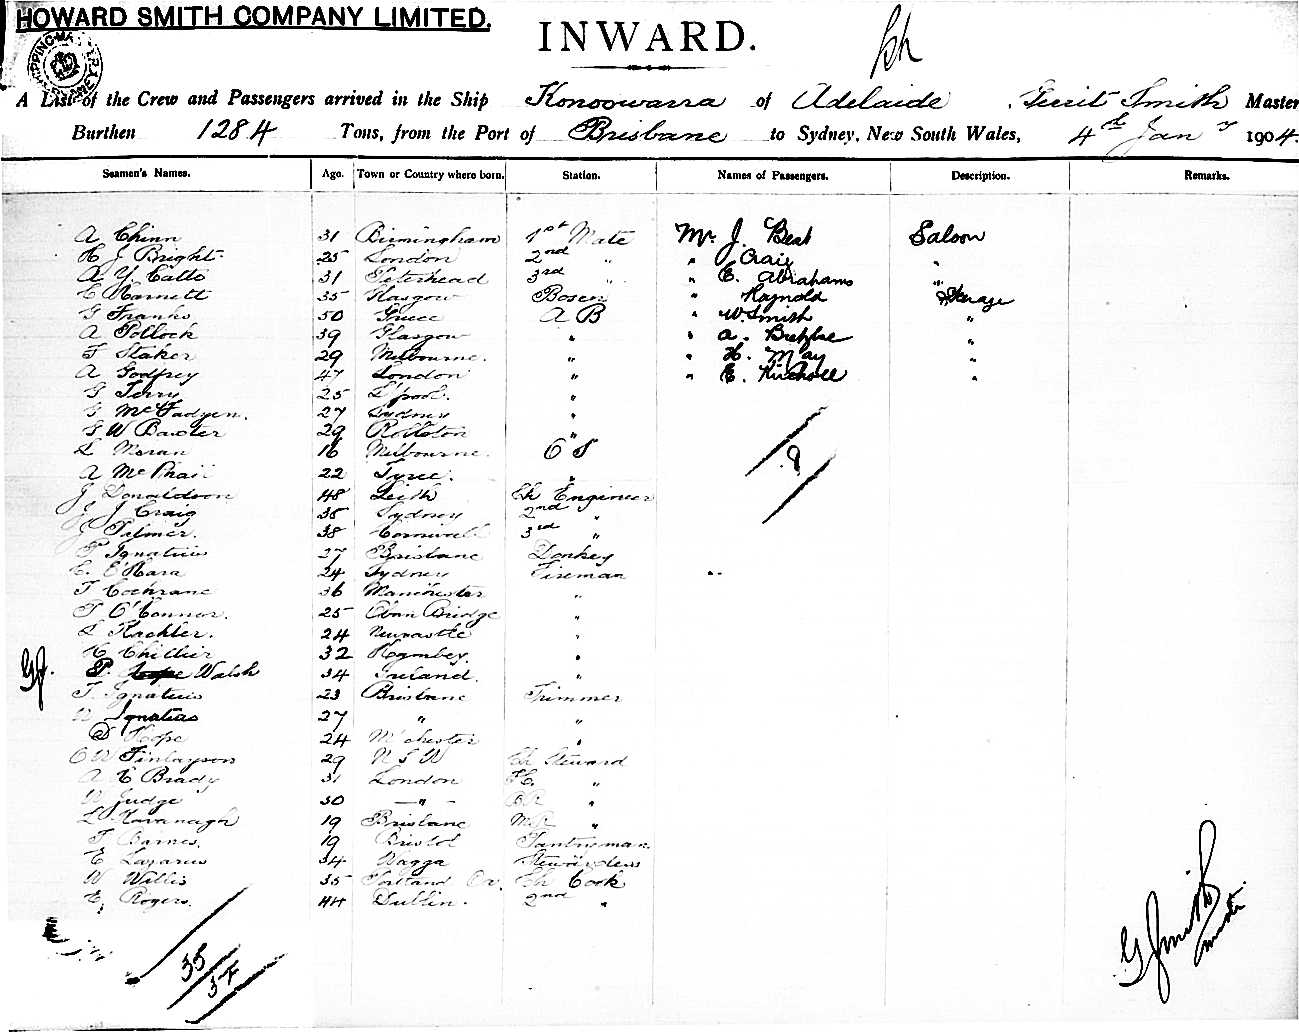 HOWARD SMITH COMPANY LIMITED.
INWARD.
A List of the Crew and Passengers arrived in the Ship Konoowarra of Adelaide Gerrit Smith Master
Burthen 1284 Tons, from the Port of Brisbane to Sydney, New South Wales, 4th Jany 1904.
Seamen's Names. Age. Town or Country where born. Station. Names of Passengers. Description. Remarks.
A Chinn 31 Birmingham 1st Mate Mr J. Best Saloon
H J Bright 25 London 2nd " " J Craig "
A Y Catto 31 Peterhead 3rd " " E. Abrahams "
C Harnett 35 Glasgow Bosen " Raynold Steerage
G Franks 50 Greece A B " W. Smith "
A Pollock 39 Glasgow " " A. "
F Staker 29 Melbourne. " " H. May "
A Godfrey 47 London " " E. Nicholl "
G Terry 25 L'pool. "
G McFadyen. 27 Sydney "
G W Baxter 29 "
L Moran 16 Melbourne. O S
A McPhail 22 Tyree. "
J Donaldson 48 Leith Ch Engineer
J J Craig 38 Sydney 2nd "
J Palmer. 38 Cornwall 3rd "
P Ignatius 37 Brisbane Donkey
C. O'Hara 24 Sydney Fireman
T Cochrane 36 Manchester "
T O'Connor. 25 Bridge "
L Kachler. 24 Newcastle "
H Chillier 32 "
Gf. P. Hope Walsh 34 Ireland. "
T. Ignatius 23 Brisbane Trimmer
N Ignatius 27 " "
D Hope 24 M'chester "
C W Finlayson 29 N S W Ch Steward
A E Brady 31 London F.C. "
W Judge 30 " B R "
L Kavanagh 19 Brisbane M R "
F Barnes. 19 Bristol Pantryman
E Lazarus 34 Wagga Stewardess
W Willis 35 Portland Or. Ch Cook
E, Rogers. 44 Dublin. 2nd "
8
35
34
G Smith
master